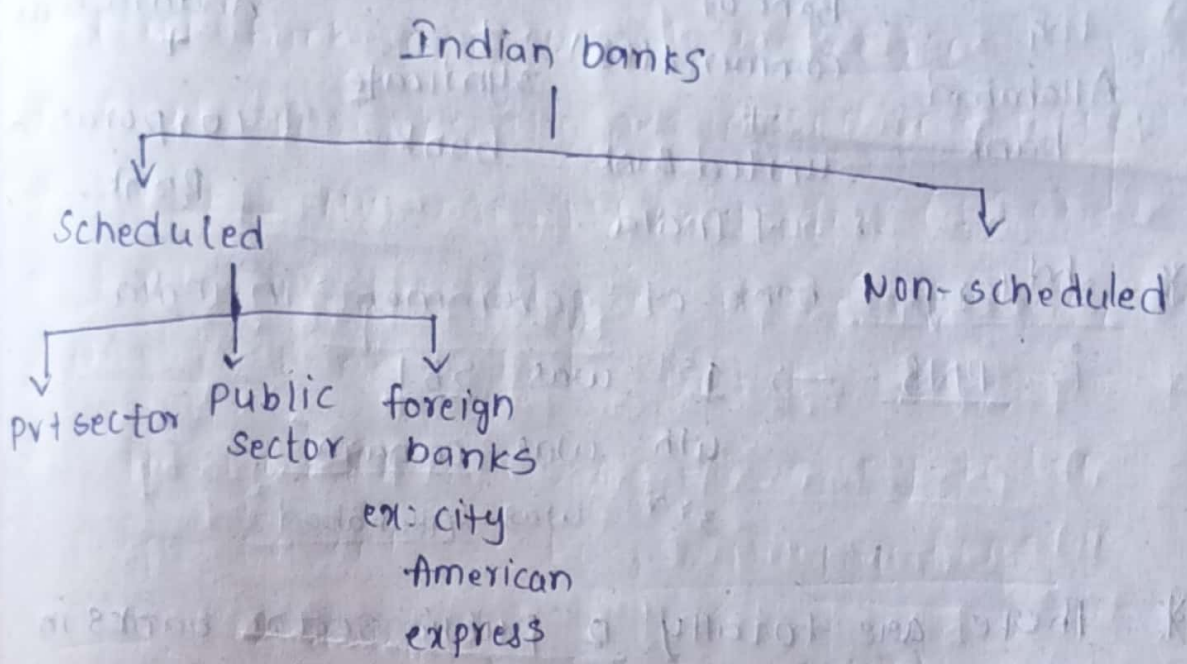 Indian banks
Scheduled
Non-scheduled
pvt sector
public
sector
foreign
banks
ex: city
American
express